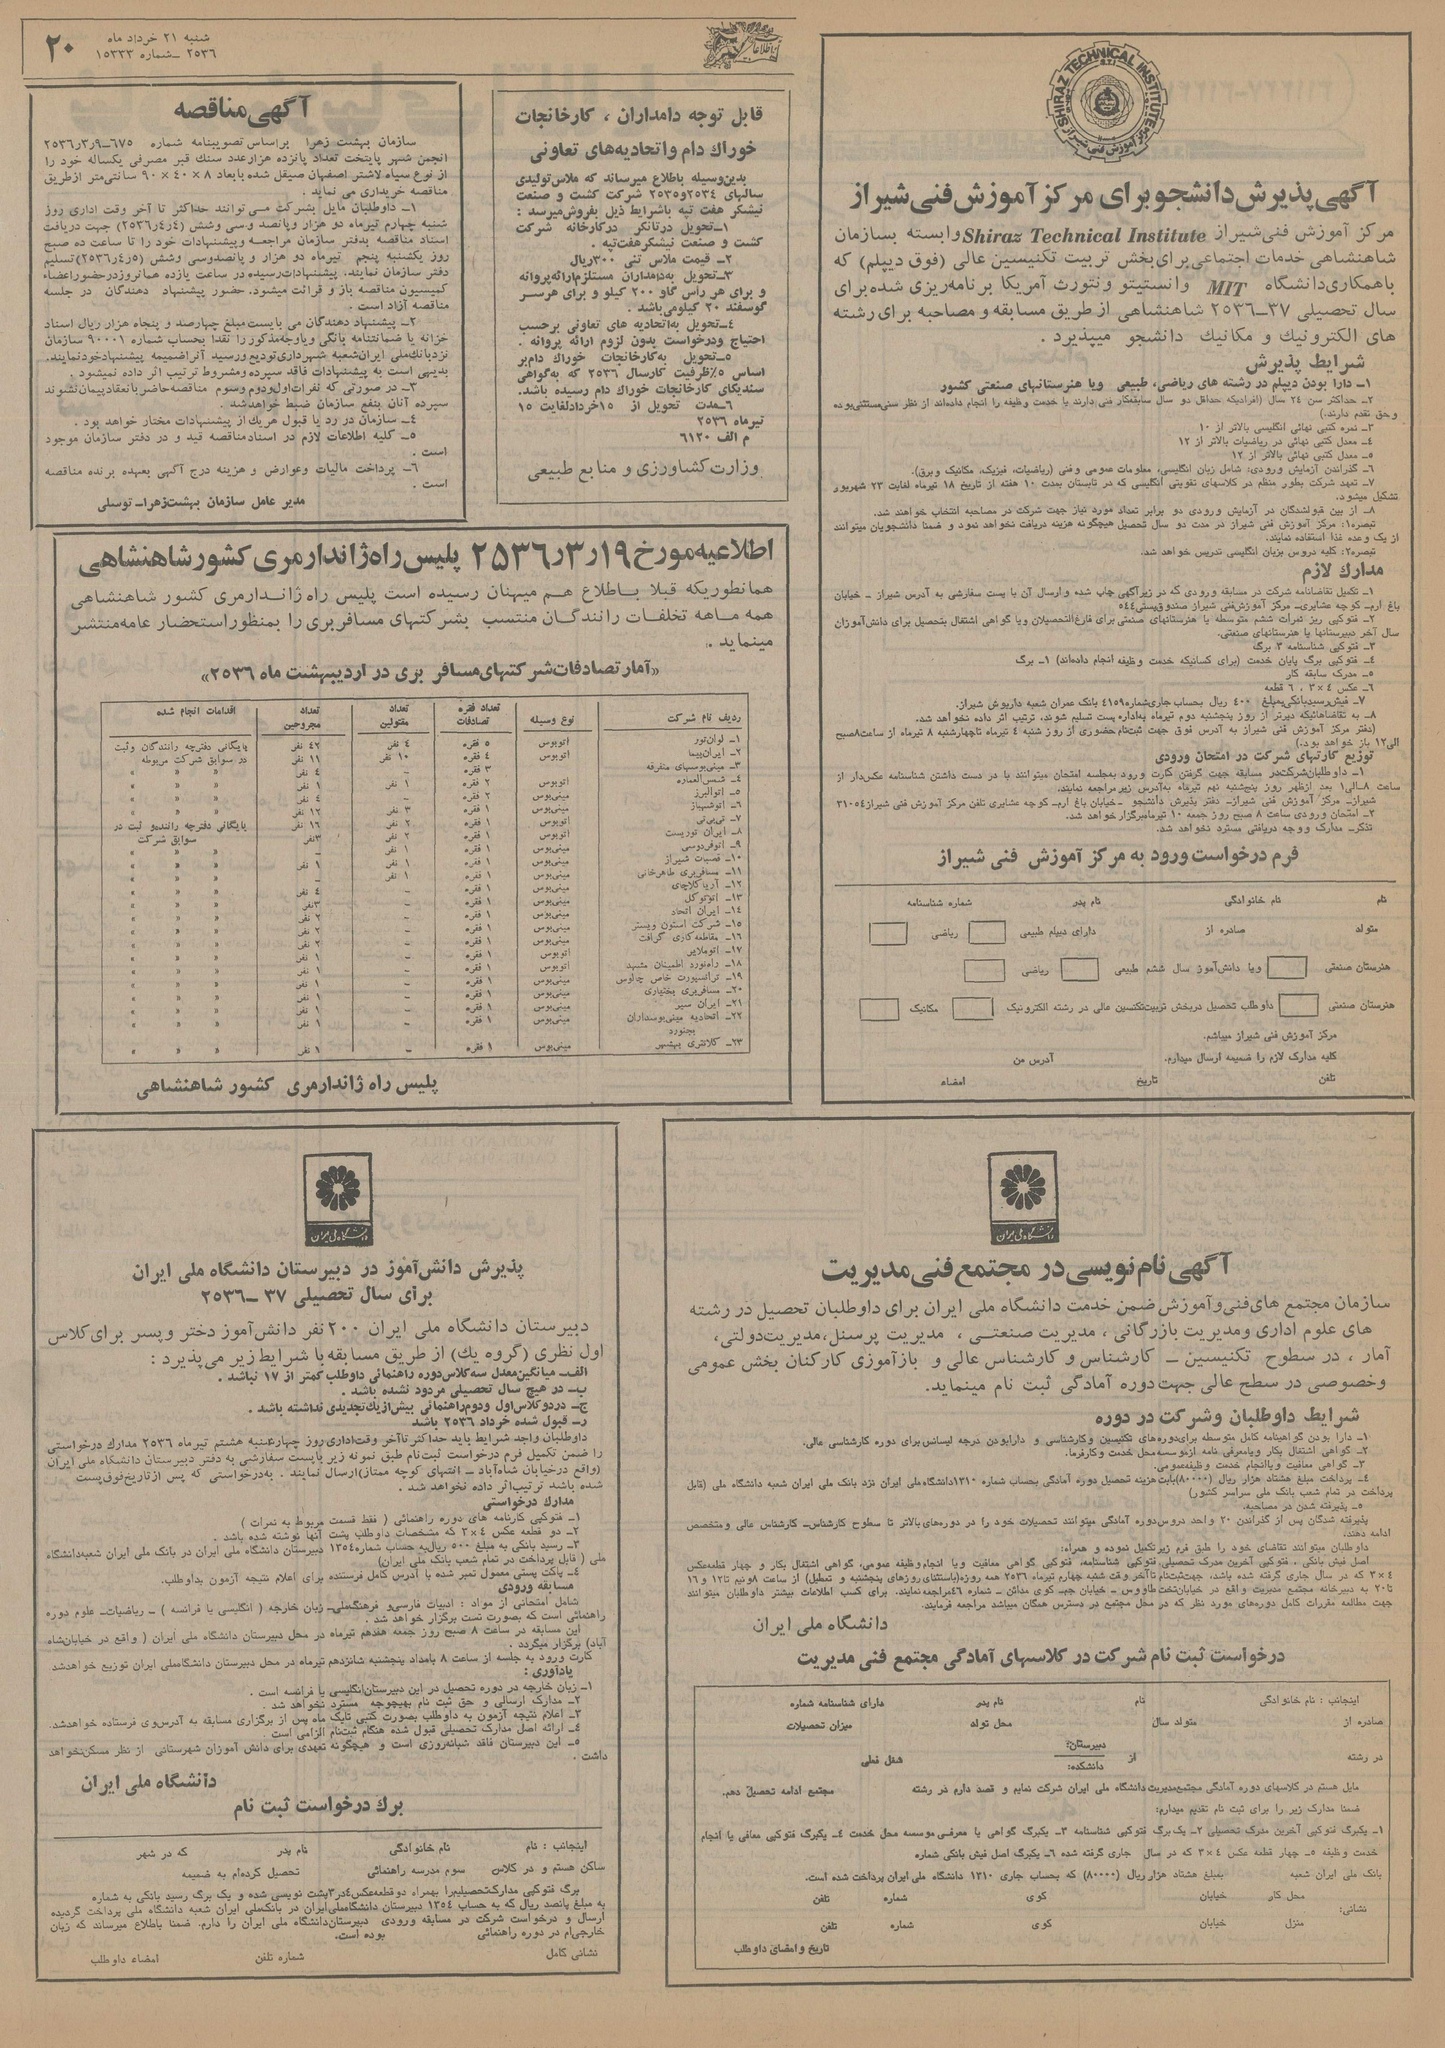 شنبه ۲۱ خرداد ماه
۲۵۳۶ ـ شماره ۱۵۳۳۳
۲۰
اطلاعات
SHIRAZ TECHNICAL INSTITUTE
مرکز آموزش فنی شیراز
آگهی پذیرش دانشجو برای مرکز آموزش فنی شیراز
مرکز آموزش فنی شیراز Shiraz Technical Institute وابسته بسازمان
شاهنشاهی خدمات اجتماعی برای بخش تربیت تکنیسین عالی (فوق دیپلم) که
باهمکاری دانشگاه MIT وانستیتو ونتورث آمریکا برنامه‌ریزی شده برای
سال تحصیلی ۳۷ـ۲۵۳۶ شاهنشاهی از طریق مسابقه و مصاحبه برای رشته
های الکترونیك و مکانیك دانشجو میپذیرد.
شرایط پذیرش
۱ـ دارا بودن دیپلم در رشته های ریاضی، طبیعی ویا هنرستانهای صنعتی کشور
۲ـ حداکثر سن ۲۴ سال (افرادیکه حداقل دو سال سابقه‌کار فنی دارند یا خدمت وظیفه را انجام داده‌اند از نظر سنی مستثنی بوده
و حق تقدم دارند.)
۳ـ نمره کتبی نهائی انگلیسی بالاتر از ۱۰
۴ـ معدل کتبی نهائی در ریاضیات بالاتر از ۱۲
۵ـ معدل کتبی نهائی بالاتر از ۱۲
۶ـ گذراندن آزمایش ورودی: شامل زبان انگلیسی، معلومات عمومی وفنی (ریاضیات، فیزیک، مکانیک وبرق).
۷ـ تعهد شرکت بطور منظم در کلاسهای تقویتی انگلیسی که در تابستان بمدت ۱۰ هفته از تاریخ ۱۸ تیرماه لغایت ۲۳ شهریور
تشکیل میشود.
۸ـ از بین قبولشدگان در آزمایش ورودی دو برابر تعداد مورد نیاز جهت شرکت در مصاحبه انتخاب خواهند شد.
تبصره۱: مرکز آموزش فنی شیراز در مدت دو سال تحصیل هیچگونه هزینه دریافت نخواهد نمود و ضمنا دانشجویان میتوانند
از یک وعده غذا استفاده نمایند.
تبصره۲: کلیه دروس بزبان انگلیسی تدریس خواهد شد.
مدارك لازم
۱ـ تکمیل تقاضانامه شرکت در مسابقه ورودی که در زیرآگهی چاپ شده وارسال آن با پست سفارشی به آدرس شیراز ـ خیابان
باغ ارم ـ کوچه عشایری ـ مرکز آموزش فنی شیراز صندوق پستی۵۴۴
۲ـ فتوکپی ریز نمرات ششم متوسطه یا هنرستانهای صنعتی برای فارغ‌التحصیلان ویا گواهی اشتغال بتحصیل برای دانش‌آموزان
سال آخر دبیرستانها یا هنرستانهای صنعتی.
۳ـ فتوکپی شناسنامه ۲ برگ
۴ـ فتوکپی برگ پایان خدمت (برای کسانیکه خدمت وظیفه انجام داده‌اند) ۱ـ برگ
۵ـ مدرک سابقه کار
۶ـ عکس ۴×۳ ، ۶ قطعه
۷ـ فیش رسید بانکی بمبلغ ۴۰۰ ریال بحساب جاری شماره۴۱۵۹ بانک عمران شعبه داریوش شیراز.
۸ـ به تقاضاهائیکه دیرتر از روز پنجشنبه دوم تیرماه به‌اداره پست تسلیم شوند، ترتیب اثر داده نخواهد شد.
(دفتر مرکز آموزش فنی شیراز به آدرس فوق جهت ثبت‌نام حضوری از روز شنبه ۴ تیرماه تاچهارشنبه ۸ تیرماه از ساعت۸صبح
الی۱۲ باز خواهد بود.)
توزیع کارتهای شرکت در امتحان ورودی
۱ـ داوطلبان شرکت در مسابقه جهت گرفتن کارت ورود به‌جلسه امتحان میتوانند با در دست داشتن شناسنامه عکس‌دار از
ساعت ۸ـ الی۱ بعد ازظهر روز پنج‌شنبه نهم تیرماه به‌آدرس زیر مراجعه نمایند.
شیراز ـ مرکز آموزش فنی شیراز ـ دفتر پذیرش دانشجو ـ خیابان باغ ارم ـ کوچه عشایری تلفن مرکز آموزش فنی شیراز۳۱۰۵۴
۲ـ امتحان ورودی ساعت ۸ صبح روز جمعه ۱۰ تیرماه‌برگزار خواهد شد.
تذکر ـ مدارک ووجه دریافتی مسترد نخواهد شد.
فرم درخواست ورود به مرکز آموزش فنی شیراز
نام نام خانوادگی نام پدر شماره شناسنامه
متولد صادره از دارای دیپلم طبیعی ریاضی
هنرستان صنعتی ویا دانش‌آموز سال ششم طبیعی ریاضی
هنرستان صنعتی داوطلب تحصیل دربخش تربیت‌تکنسین عالی در رشته الکترونیک مکانیک
مرکز آموزش فنی شیراز میباشم.
کلیه مدارک لازم را ضمیمه ارسال میدارم. آدرس من
تلفن تاریخ امضاء
قابل توجه دامداران ، کارخانجات
خوراك دام واتحادیه‌های تعاونی
بدین‌وسیله باطلاع میرساند که ملاس‌تولیدی
سالهای ۲۵۳۴و۲۵۳۵ شرکت کشت و صنعت
نیشکر هفت تپه باشرایط ذیل بفروش‌میرسد :
۱ـ تحویل درتانکر درکارخانه شرکت
کشت و صنعت نیشکر هفت‌تپه .
۲ـ قیمت ملاس تنی ۳۰۰ریال
۳ـ تحویل به‌دامداران مستلزم‌ارائه‌پروانه
و برای هر راس گاو ۲۰۰ کیلو و برای هرسر
گوسفند ۲۰ کیلومی‌باشد .
۴ـ تحویل به‌اتحادیه های تعاونی برحسب
احتیاج ودرخواست بدون لزوم ارائه پروانه .
۵ـ تحویل به‌کارخانجات خوراك دام‌بر
اساس ۵٪ظرفیت کارسال ۲۵۳۶ که به‌گواهی
سندیکای کارخانجات خوراك دام رسیده باشد.
۶ـ مدت تحویل از ۱۵خردادلغایت ۱۵
تیرماه ۲۵۳۶
م الف ۶۱۲۰
وزارت کشاورزی و منابع طبیعی
آگهی مناقصه
سازمان بهشت زهرا براساس تصویبنامه شماره ۶۷۵ـ۹ر۳ر۲۵۳۶
انجمن شهر پایتخت تعداد پانزده هزارعدد سنك قبر مصرفی یکساله خود را
از نوع سیاه لاشتر اصفهان صیقل شده بابعاد ۸ × ۴۰ × ۹۰ سانتی‌متر ازطریق
مناقصه خریداری می نماید .
۱ـ داوطلبان مایل بشرکت می توانند حداکثر تا آخر وقت اداری روز
شنبه چهارم تیرماه دو هزار وپانصد وسی وشش (۴ر۴ر۲۵۳۶) جهت دریافت
اسناد مناقصه بدفتر سازمان مراجعه وپیشنهادات خود را تا ساعت ده صبح
روز یکشنبه پنجم تیرماه دو هزار و پانصدوسی وشش (۵ر۴ر۲۵۳۶) تسلیم
دفتر سازمان نمایند. پیشنهادات رسیده در ساعت یازده همانروزدرحضوراعضاء
کمیسیون مناقصه باز و قرائت میشود. حضور پیشنهاد دهندگان در جلسه
مناقصه آزاد است .
۲ـ پیشنهاد دهندگان می بایست مبلغ چهارصد و پنجاه هزار ریال اسناد
خزانه یا ضمانتنامه بانگی ویاوجه‌مذکور را نقدا بحساب شماره ۹۰۰۰۱ سازمان
نزدبانك‌ملی ایران شعبه شهرداری تودیع ورسید آنراضمیمه پیشنهادخودنمایند.
بدیهی است به پیشنهادات فاقد سپرده ومشروط ترتیب اثر داده نمیشود .
۳ـ در صورتی که نفرات اول ودوم وسوم مناقصه حاضربانعقاد پیمان نشوند
سپرده آنان بنفع سازمان ضبط خواهدشد .
۴ـ سازمان در رد یا قبول هریك از پیشنهادات مختار خواهد بود .
۵ـ کلیه اطلاعات لازم در اسناد مناقصه قید و در دفتر سازمان موجود
است .
۶ـ پرداخت مالیات وعوارض و هزینه درج آگهی بعهده برنده مناقصه
است .
مدیر عامل سازمان بهشت‌زهرا ـ توسلی
اطلاعیه مورخ ۱۹ر۳ر۲۵۳۶ پلیس راه ژاندارمری کشور شاهنشاهی
همانطوریکه قبلا باطلاع هم میهنان رسیده است پلیس راه ژاندارمری کشور شاهنشاهی
همه ماهه تخلفات رانندگان منتسب بشرکتهای مسافربری را بمنظور استحضار عامه‌منتشر
مینماید .
«آمارتصادفات شرکتهای مسافر بری در اردیبهشت ماه ۲۵۳۶»
ردیف نام شرکت نوع وسیله تعداد فقره تصادفات تعداد مقتولین تعداد مجروحین اقدامات انجام شده
۱ـ لوان‌تور اتوبوس ۵ فقره ۴ نفر ۴۲ نفر بایگانی دفترچه رانندگان وثبت
۲ـ ایران‌پیما اتوبوس ۴ فقره ۱۰ نفر ۱۱ نفر در سوابق شرکت مربوطه
۳ـ مینی‌بوسهای متفرقه ۳ فقره ـ ۴ نفر » » »
۴ـ شمس‌العماره اتوبوس ۲ فقره ۱ نفر ۱ نفر » » »
۵ـ اتوالبرز مینی‌بوس ۲ فقره ـ ۴ نفر » » »
۶ـ اتوشهباز اتوبوس ۱ فقره ۳ نفر ۱۲ نفر » » »
۷ـ تی‌بی‌تی اتوبوس ۱ فقره ۲ نفر ۱۶ نفر بایگانی دفترچه راننده‌و ثبت در
۸ـ ایران توریست اتوبوس ۱ فقره ۲ نفر ۳نفر سوابق شرکت
۹ـ اتوفردوسی مینی‌بوس ۱ فقره ۱ نفر ـ » » »
۱۰ـ قصبات شیراز مینی‌بوس ۱ فقره ۱ نفر ۱ نفر » » »
۱۱ـ مسافربری طاهرخانی مینی‌بوس ۱ فقره ۱ نفر ـ » » »
۱۲ـ آریاکلاچای مینی‌بوس ۱ فقره ـ ۴ نفر » » »
۱۳ـ اتوتوکل مینی‌بوس ۱ فقره ـ ۳نفر » » »
۱۴ـ ایران اتحاد مینی‌بوس ۱ فقره ـ ۲ نفر » » »
۱۵ـ شرکت استون وبستر مینی‌بوس ۱ فقره ـ ۲ نفر » » »
۱۶ـ مقاطعه‌کاری گرافت اتوبوس ۱ فقره ـ ۲ نفر » » »
۱۷ـ اتوملایر مینی‌بوس ۱ فقره ـ ۱ نفر » » »
۱۸ـ راه‌نورد اطمینان مشهد اتوبوس ۱ فقره ـ ۱ نفر » » »
۱۹ـ ترانسپورت خاص چالوس مینی‌بوس ۱ فقره ـ ۱ نفر » » »
۲۰ـ مسافربری بختیاری مینی‌بوس ۱ فقره ـ ۱ نفر » » »
۲۱ـ ایران سیر مینی‌بوس ۱ فقره ـ ۱ نفر » » »
۲۲ـ اتحادیه مینی‌بوسداران بجنورد مینی‌بوس ۱ فقره ـ ۱ نفر » » »
۲۳ـ کلانتری بهشهر مینی‌بوس ۱ فقره ـ ۱ نفر » » »
پلیس راه ژاندارمری کشور شاهنشاهی
دانشگاه ملی ایران
آگهی نام نویسی در مجتمع فنی مدیریت
سازمان مجتمع های فنی وآموزش ضمن خدمت دانشگاه ملی ایران برای داوطلبان تحصیل در رشته
های علوم اداری ومدیریت بازرگانی ، مدیریت صنعتی ، مدیریت پرسنل،مدیریت‌دولتی،
آمار ، در سطوح تکنیسین ـ کارشناس و کارشناس عالی و بازآموزی کارکنان بخش عمومی
وخصوصی در سطح عالی جهت دوره آمادگی ثبت نام مینماید.
شرایط داوطلبان وشرکت در دوره
۱ـ دارا بودن گواهینامه کامل متوسطه برای‌دوره‌های تکنیسین وکارشناسی و دارابودن درجه لیسانس برای دوره کارشناسی عالی.
۲ـ گواهی اشتغال بکار ویامعرفی نامه ازموسسه محل خدمت وکارفرما.
۳ـ گواهی معافیت ویاانجام خدمت وظیفه‌عمومی.
۴ـ پرداخت مبلغ هشتاد هزار ریال (۸۰۰۰۰)بابت‌هزینه تحصیل دوره آمادگی بحساب شماره ۱۳۱۰دانشگاه‌ملی ایران نزد بانک ملی ایران شعبه دانشگاه ملی (قابل
پرداخت در تمام شعب بانک ملی سراسر کشور)
۵ـ پذیرفته شدن در مصاحبه.
پذیرفته شدگان پس از گذراندن ۲۰ واحد دروس‌دوره آمادگی میتوانند تحصیلات خود را در دوره‌های بالاتر تا سطوح کارشناس ـ کارشناس عالی ومتخصص
ادامه دهند.
داوطلبان میتوانند تقاضای خود را طبق فرم زیرتکمیل نموده و همراه:
اصل فیش بانکی ، فتوکپی آخرین مدرک تحصیلی، فتوکپی شناسنامه، فتوکپی گواهی معافیت ویا انجام‌وظیفه عمومی، گواهی اشتغال بکار و چهار قطعه‌عکس
۴ × ۳ که در سال جاری گرفته شده باشد، جهت‌ثبت‌نام تاآخر وقت شنبه چهارم تیرماه ۲۵۳۶ همه روزه(باستثنای روزهای پنجشنبه و تعطیل) از ساعت ۸ونیم تا۱۲ و ۱۶
تا۲۰ به دبیرخانه مجتمع مدیریت واقع در خیابان‌تخت طاووس ـ خیابان جم ـ کوی مدائن ـ شماره ۴۶مراجعه نمایند. برای کسب اطلاعات بیشتر داوطلبان میتوانند
جهت مطالعه مقررات کامل دوره‌های مورد نظر که در محل مجتمع در دسترس همگان میباشد مراجعه فرمایند.
دانشگاه ملی ایران
درخواست ثبت نام شرکت در کلاسهای آمادگی مجتمع فنی مدیریت
اینجانب : نام خانوادگی نام نام پدر دارای شناسنامه شماره
صادره از متولد سال محل تولد میزان تحصیلات
در رشته از دبیرستان: دانشکده: شغل فعلی
مایل هستم در کلاسهای دوره آمادگی مجتمع‌مدیریت دانشگاه ملی ایران شرکت نمایم و قصد دارم در رشته مجتمع ادامه تحصیل دهم.
ضمنا مدارک زیر را برای ثبت نام تقدیم میدارم:
۱ـ یکبرگ فتوکپی آخرین مدرک تحصیلی ۲ـ یک برگ فتوکپی شناسنامه ۳ـ یکبرگ گواهی یا معرفی موسسه محل خدمت ۴ـ یکبرگ فتوکپی معافی یا انجام
خدمت وظیفه ۵ـ چهار قطعه عکس ۴×۳ که در سال جاری گرفته شده ۶ـ یکبرگ اصل فیش بانکی شماره
بانک ملی ایران شعبه بمبلغ هشتاد هزار ریال (۸۰۰۰۰) که بحساب جاری ۱۳۱۰ دانشگاه ملی ایران پرداخت شده است.
نشانی:
محل کار خیابان کوی شماره تلفن
منزل خیابان کوی شماره تلفن
تاریخ و امضای داوطلب
دانشگاه ملی ایران
پذیرش دانش‌آموز در دبیرستان دانشگاه ملی ایران
برای سال تحصیلی ۳۷ ـ۲۵۳۶
دبیرستان دانشگاه ملی ایران ۲۰۰ نفر دانش‌آموز دختر وپسر برای کلاس
اول نظری (گروه یك) از طریق مسابقه با شرایط زیر می‌پذیرد :
الف ـ میانگین معدل سه کلاس دوره راهنمائی داوطلب کمتر از ۱۷ نباشد .
ب ـ در هیچ سال تحصیلی مردود نشده باشد .
ج ـ دردوکلاس اول ودوم راهنمائی بیش‌ازیك‌تجدیدی نداشته باشد .
ر ـ قبول شده خرداد ۲۵۳۶ باشد
داوطلبان واجد شرایط باید حداکثر تاآخر وقت‌اداری روز چهارشنبه هشتم تیرماه ۲۵۳۶ مدارك درخواستی
را ضمن تکمیل فرم درخواست ثبت‌نام طبق نمونه زیر باپست سفارشی به دفتر دبیرستان دانشگاه ملی ایران
(واقع درخیابان شاه‌آباد ـ انتهای کوچه ممتاز) ارسال نمایند . به‌درخواستی که پس ازتاریخ‌فوق‌پست
شده باشد ترتیب‌اثر داده نخواهد شد .
مدارك درخواستی
۱ـ فتوکپی کارنامه های دوره راهنمائی ( فقط قسمت مربوط به نمرات )
۲ـ دو قطعه عکس ۴×۳ که مشخصات داوطلب پشت آنها نوشته شده باشد .
۳ـ رسید بانکی به مبلغ ۵۰۰ ریال‌به حساب شماره۱۳۵۴ دبیرستان دانشگاه ملی ایران در بانک ملی ایران شعبه‌دانشگاه
ملی ( قابل پرداخت در تمام شعب بانک ملی ایران)
۴ـ پاکت پستی معمول تمبر شده با آدرس کامل فرستنده برای اعلام نتیجه آزمون به‌داوطلب.
مسابقه ورودی
شامل امتحانی از مواد : ادبیات فارسی‌و فرهنگ‌ملی ـ زبان خارجه ( انگلیسی یا فرانسه ) ـ ریاضیات ـ علوم دوره
راهنمائی است که بصورت تست برگزار خواهد شد .
این مسابقه در ساعت ۸ صبح روز جمعه هفدهم تیرماه در محل دبیرستان دانشگاه ملی ایران ( واقع در خیابان‌شاه
آباد) برگزار میگردد .
کارت ورود به جلسه از ساعت ۸ بامداد پنجشنبه شانزدهم تیرماه در محل دبیرستان دانشگاه‌ملی ایران توزیع خواهدشد
یادآوری :
۱ـ زبان خارجه در دوره تحصیل در این دبیرستان‌انگلیسی یا فرانسه است .
۲ـ مدارك ارسالی و حق ثبت نام بهیچوجه مسترد نخواهد شد .
۳ـ اعلام نتیجه آزمون به داوطلب بصورت کتبی تایک ماه پس از برگزاری مسابقه به آدرس‌وی فرستاده خواهدشد.
۴ـ ارائه اصل مدارک تحصیلی قبول شده هنگام ثبت‌نام الزامی است .
۵ـ این دبیرستان فاقد شبانه‌روزی است و هیچگونه تعهدی برای دانش آموزان شهرستانی از نظر مسکن‌نخواهد
داشت .
دانشگاه ملی ایران
برك درخواست ثبت نام
اینجانب : نام نام خانوادگی نام پدر که در شهر
ساکن هستم و در کلاس سوم مدرسه راهنمائی تحصیل کرده‌ام به ضمیمه
برگ فتوکپی مدارک‌تحصیلیم‌را بهمراه دوقطعه‌عکس۴در۳پشت نویسی شده و یک برگ رسید بانکی به شماره
به مبلغ پانصد ریال که به حساب ۱۳۵۴ دبیرستان دانشگاه‌ملی‌ایران در بانک‌ملی ایران شعبه دانشگاه ملی پرداخت گردیده
ارسال و درخواست شرکت در مسابقه ورودی دبیرستان‌دانشگاه ملی ایران را دارم. ضمنا باطلاع میرساند که زبان
خارجی‌ام در دوره راهنمائی بوده است.
نشانی کامل شماره تلفن امضاء داوطلب